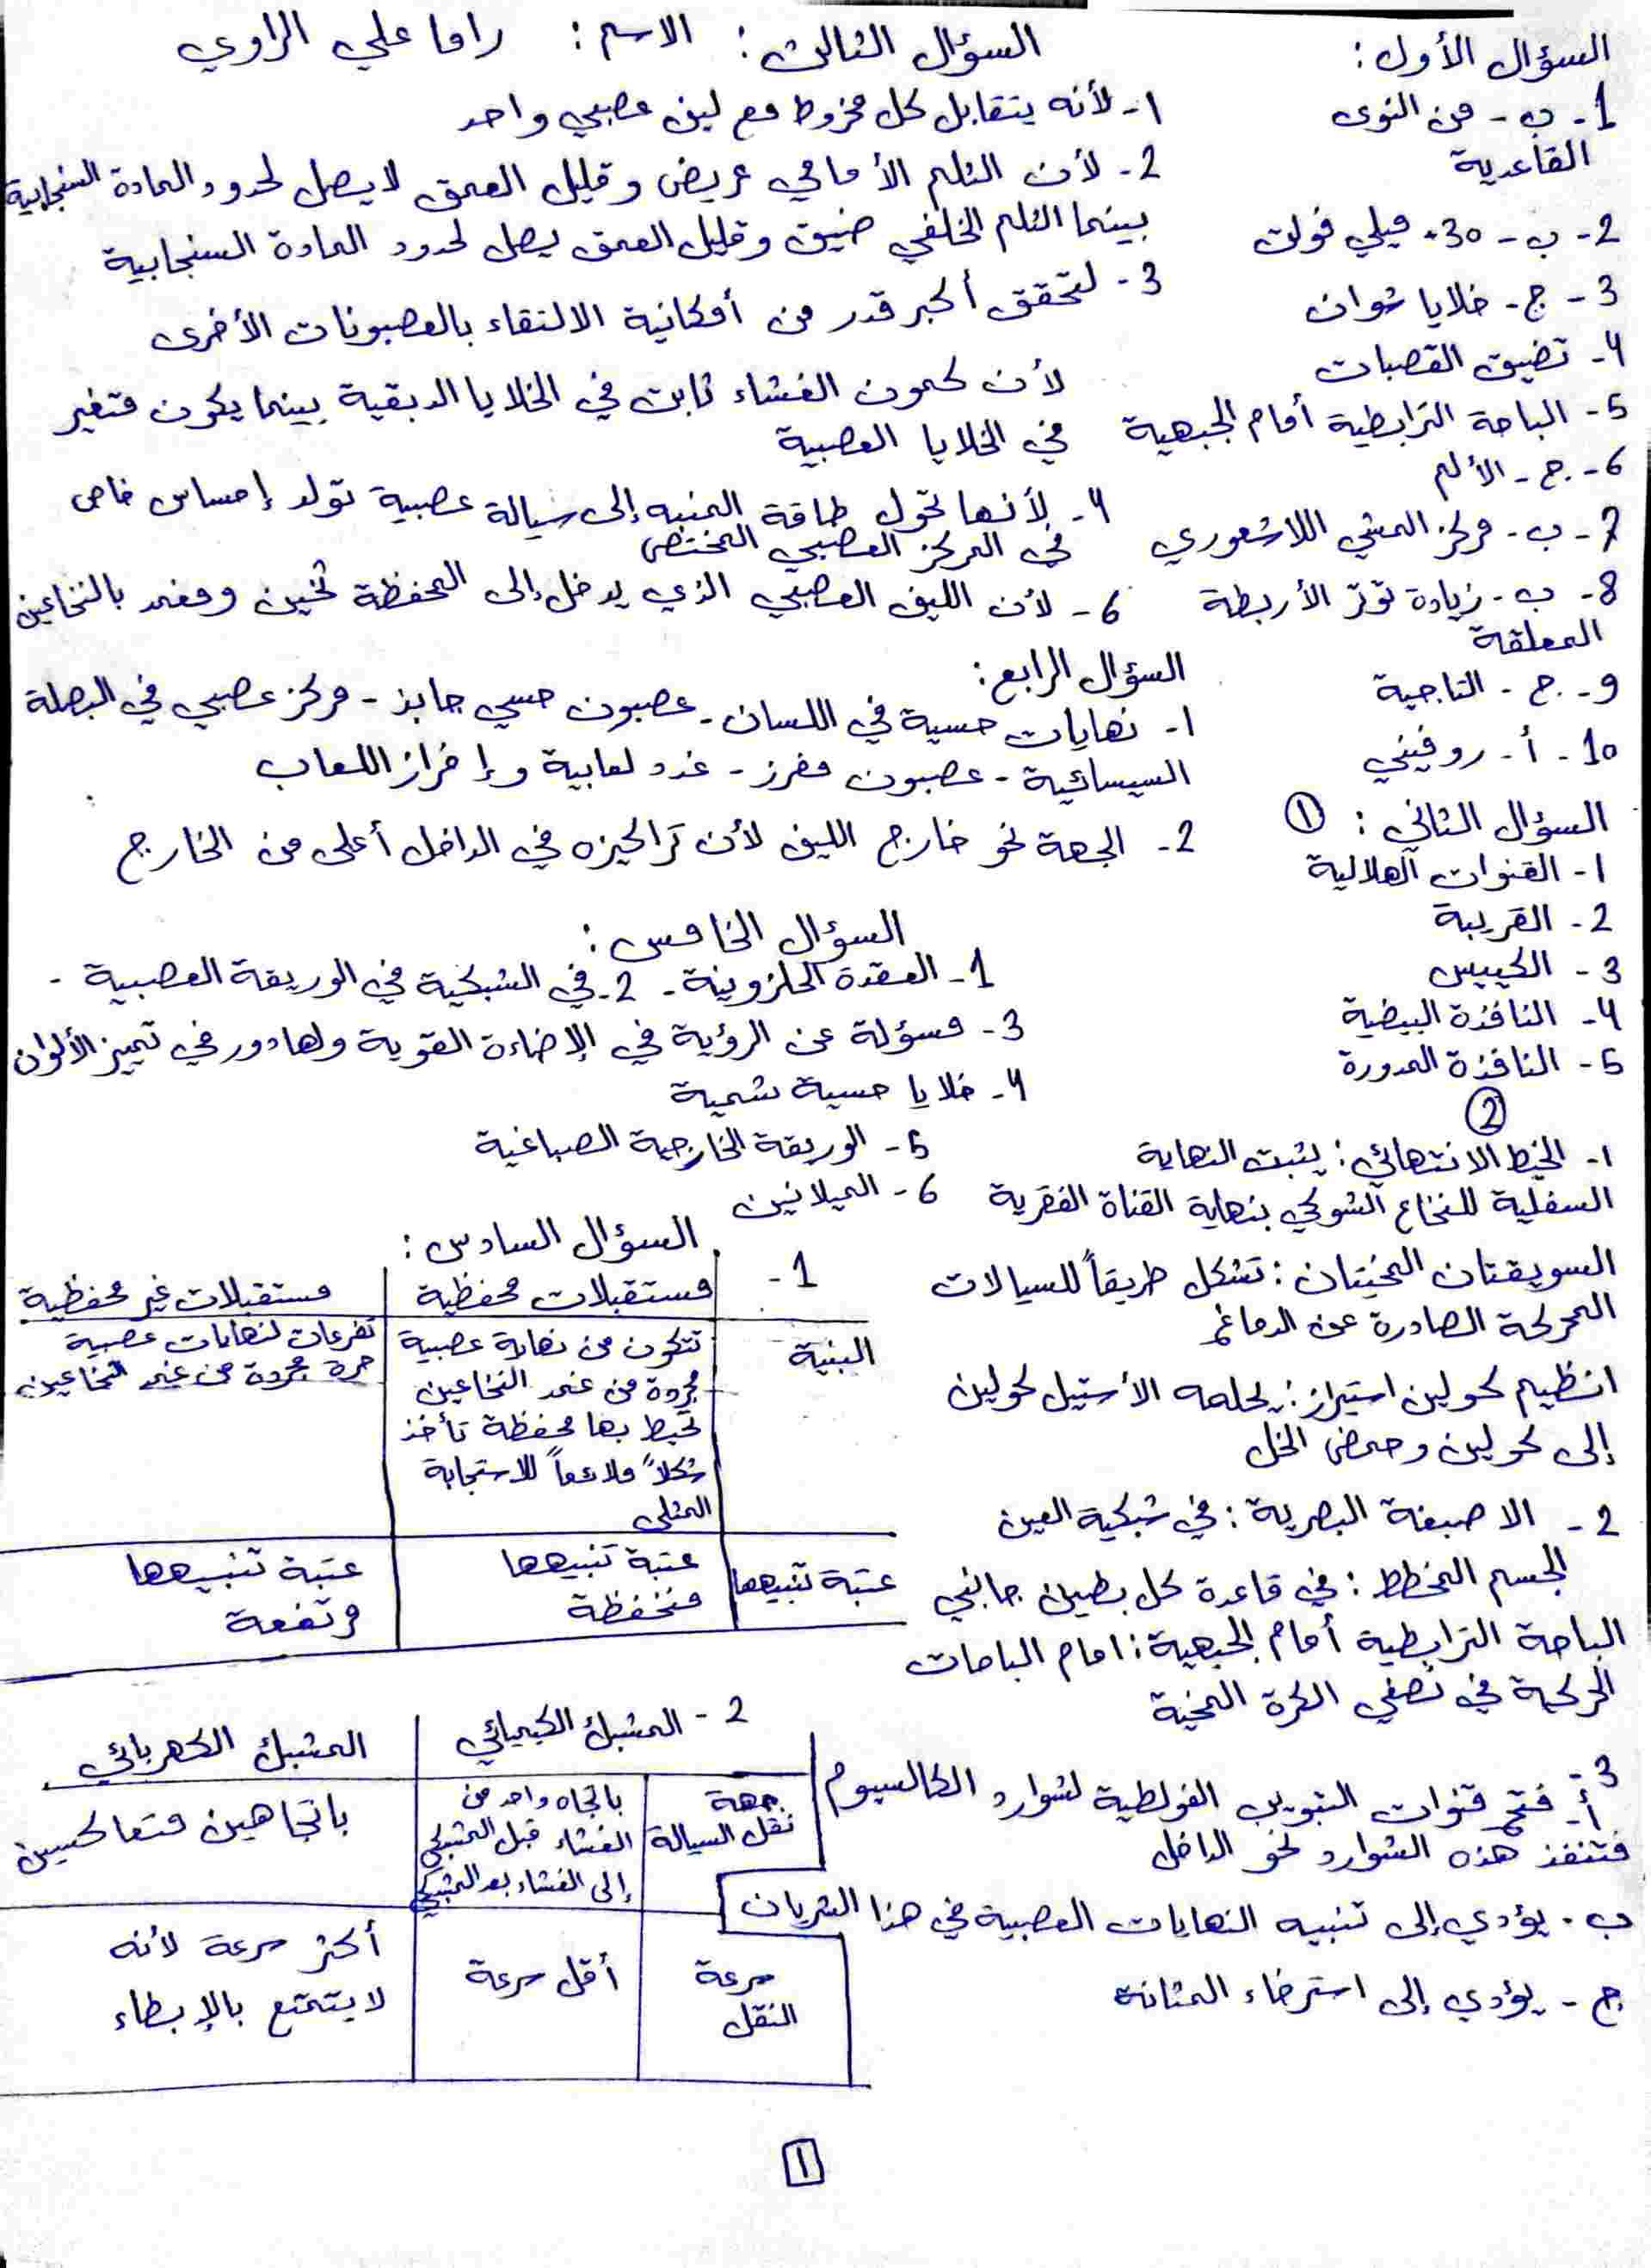 السؤال الأول:
1- ب - من النوى
القاعدية
2- ب - 30- ميلي فولت
3- ج - خلايا شوان
4- تضيق القصبات
5- الباحة الترابطية أمام الجبهية
6- ج - الألم
7- ب - مركز المشي اللاشعوري
8- ب - زيادة توتر الأربطة
المعلقة
9- ج - التاجية
10- أ - روفيني
السؤال الثاني: ①
1- القنوات الهلالية
2- القريبة
3- الكييس
4- النافذة البيضية
5- النافذة المدورة
②
1- الخيط الانتهائي: يثبت النهاية
السفلية للنخاع الشوكي بنهاية القناة الفقرية
السويقتان المخيتان: تشكل طريقاً للسيالات
المحركة الصادرة عن الدماغ
انظيم كولين استيراز: يحلمه الأستيل كولين
إلى كولين وحمض الخل
2- الاصبغة البصرية: في شبكية العين
الجسم المخطط: في قاعدة كل بطين جانبي
الباحة الترابطية أمام الجبهية: امام الباحات
الحركية في نصفي الكرة المخية
3-
أ- فتح قنوات التبويب الفولطية لشوارد الكالسيوم
فتنفذ هذه الشوارد نحو الداخل
ب- يؤدي إلى تنبيه النهايات العصبية في هذا الشريان
ج- يؤدي إلى استرخاء المثانة
السؤال الثالث: الاسم: راما علي الراوي
1- لأنه يتقابل كل مخروط مع ليف عصبي واحد
2- لأن الثلم الأمامي عريض وقليل العمق لا يصل لحدود المادة السنجابية
بينما الثلم الخلفي ضيق وقليل العمق يصل لحدود المادة السنجابية
3- لتحقق أكبر قدر من أمكانية الالتقاء بالعصبونات الأخرى
لأن كمون الغشاء ثابت في الخلايا الدبقية بينما يكون متغير
في الخلايا العصبية
4- لأنها تحول طاقة المنبه إلى سيالة عصبية تولد إحساس خاص
في المركز العصبي المختص
6- لأن الليف العصبي الذي يدخل إلى المحفظة ثخين ومغمد بالنخاعين
السؤال الرابع:
1- نهايات حسية في اللسان - عصبون حسي جابذ - مركز عصبي في البصلة
السيسائية - عصبون مفرز - غدد لعابية وإفراز اللعاب
2- الجهة نحو خارج الليف لأن تراكيزه في الداخل أعلى من الخارج
السؤال الخامس:
1- العقدة الحلزونية - 2- في الشبكية في الوريقة العصبية -
3- مسؤولة عن الرؤية في الإضاءة القوية ولها دور في تمييز الألوان
4- خلايا حسية شمية
5- الوريقة الخارجية الصباغية
6- الميلانين
السؤال السادس:
1- مستقبلات محفظية مستقبلات غير محفظية
البنية تتكون من نهاية عصبية تفرعات لنهايات عصبية
مجردة من غمد النخاعين حرة مجردة من غمد النخاعين
تحيط بها محفظة تأخذ
شكلاً ملائماً للاستجابة
المثلى
عتبة تنبيهها عتبة تنبيهها عتبة تنبيهها
منخفظة مرتفعة
2- المشبك الكيميائي المشبك الكهربائي
جهة باتجاه واحد من باتجاهين متعاكسين
نقل السيالة الغشاء قبل المشبكي
إلى الغشاء بعد المشبكي
سرعة أقل سرعة أكثر سرعة لأنه
النقل لا يتمتع بالإبطاء
1